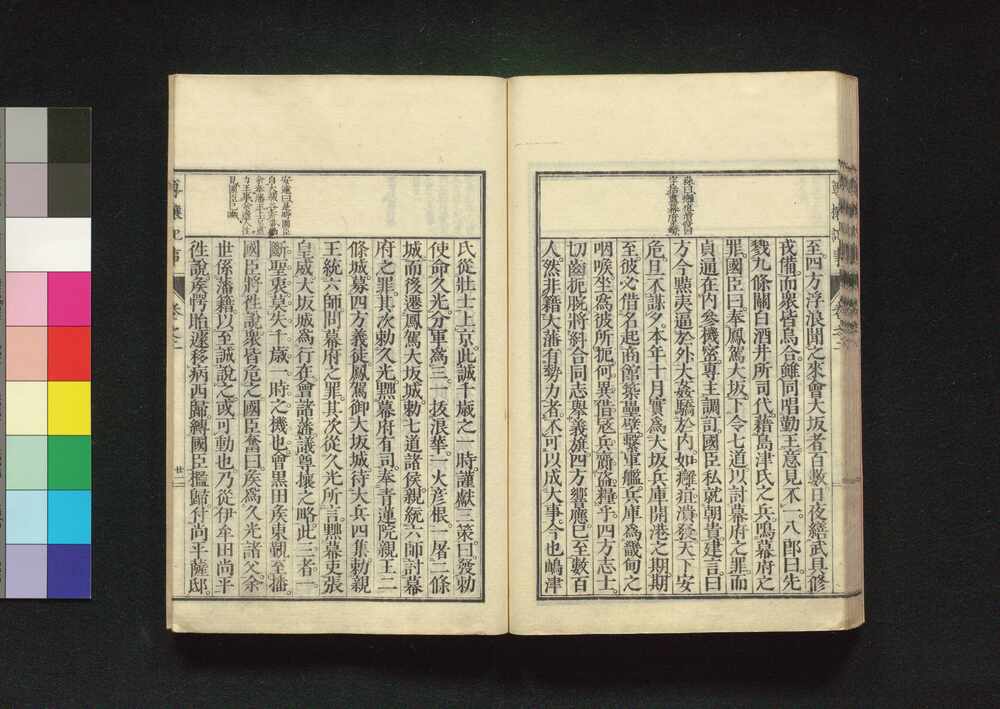 至。四方浮浪聞之、來會大坂者百數。日夜繕武具、修
戎備。而衆皆烏合。雖同唱勤王。意見不一。八郎曰。先
戮九條關白酒井所司代。藉島津氏之兵。鳴幕府之
罪。國臣曰。奉鳳駕大坂。下令七道。以討幕府之罪。而
貞通在內參機密。專主調訂。國臣私就朝貴建言。曰
方今黠夷逼於外。大姦驕於內。如癰疽潰發。天下安
危。旦不謀夕。本年十月。實爲大坂兵庫開港之期。期
至。彼必借名起商館。築壘壁。繫軍艦。兵庫爲畿甸之
咽喉。坐爲彼所扼。何異借寇兵齎盜糧乎。四方志士。
切齒扼腕。將糾合同志。擧義旗。四方響應。已至數百
人。然非藉大藩有勢力者。不可以成大事。今也嶋津
氏從壯士上京。此誠千歲之一時。謹獻三策。曰。發勅
使。命久光分軍爲三。一拔浪華。一火彥根。一屠二條
城。而後遷鳳駕大坂城。勅七道諸侯。親統六師討幕
府之罪。其次勅久光。黜幕府有司。奉青蓮院親王二
條城。募四方義徒。鳳駕御大坂城。待大兵四集。勅親
王統六師。問幕府之罪。其次從久光所言。黜幕吏。張
皇威。大坂城爲行在。會諸藩議尊攘之略。此三者。一
斷聖衷。莫失千歲一時之機也。會黑田侯東覲至播。
國臣將徃說。衆皆危之。國臣奮曰。侯爲久光諸父。余
世係藩籍。以至誠說之。或可動也。乃從伊牟田尚平
徃說。侯愕胎。遽移病西歸。縳國臣檻歸。付尚平薩邸。
廿二